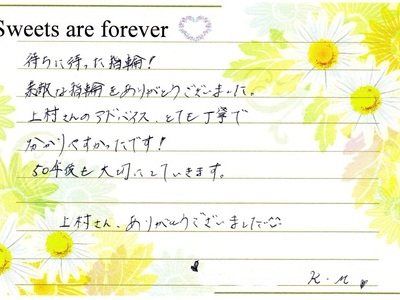 Sweets are forever
待ちに待った指輪！
素敵な指輪をありがとうございました。
上村さんのアドバイス、とても丁寧で
分かりやすかったです！
50年後も大切にしていきます。
上村さん、ありがとうございました♡
K・M ♥